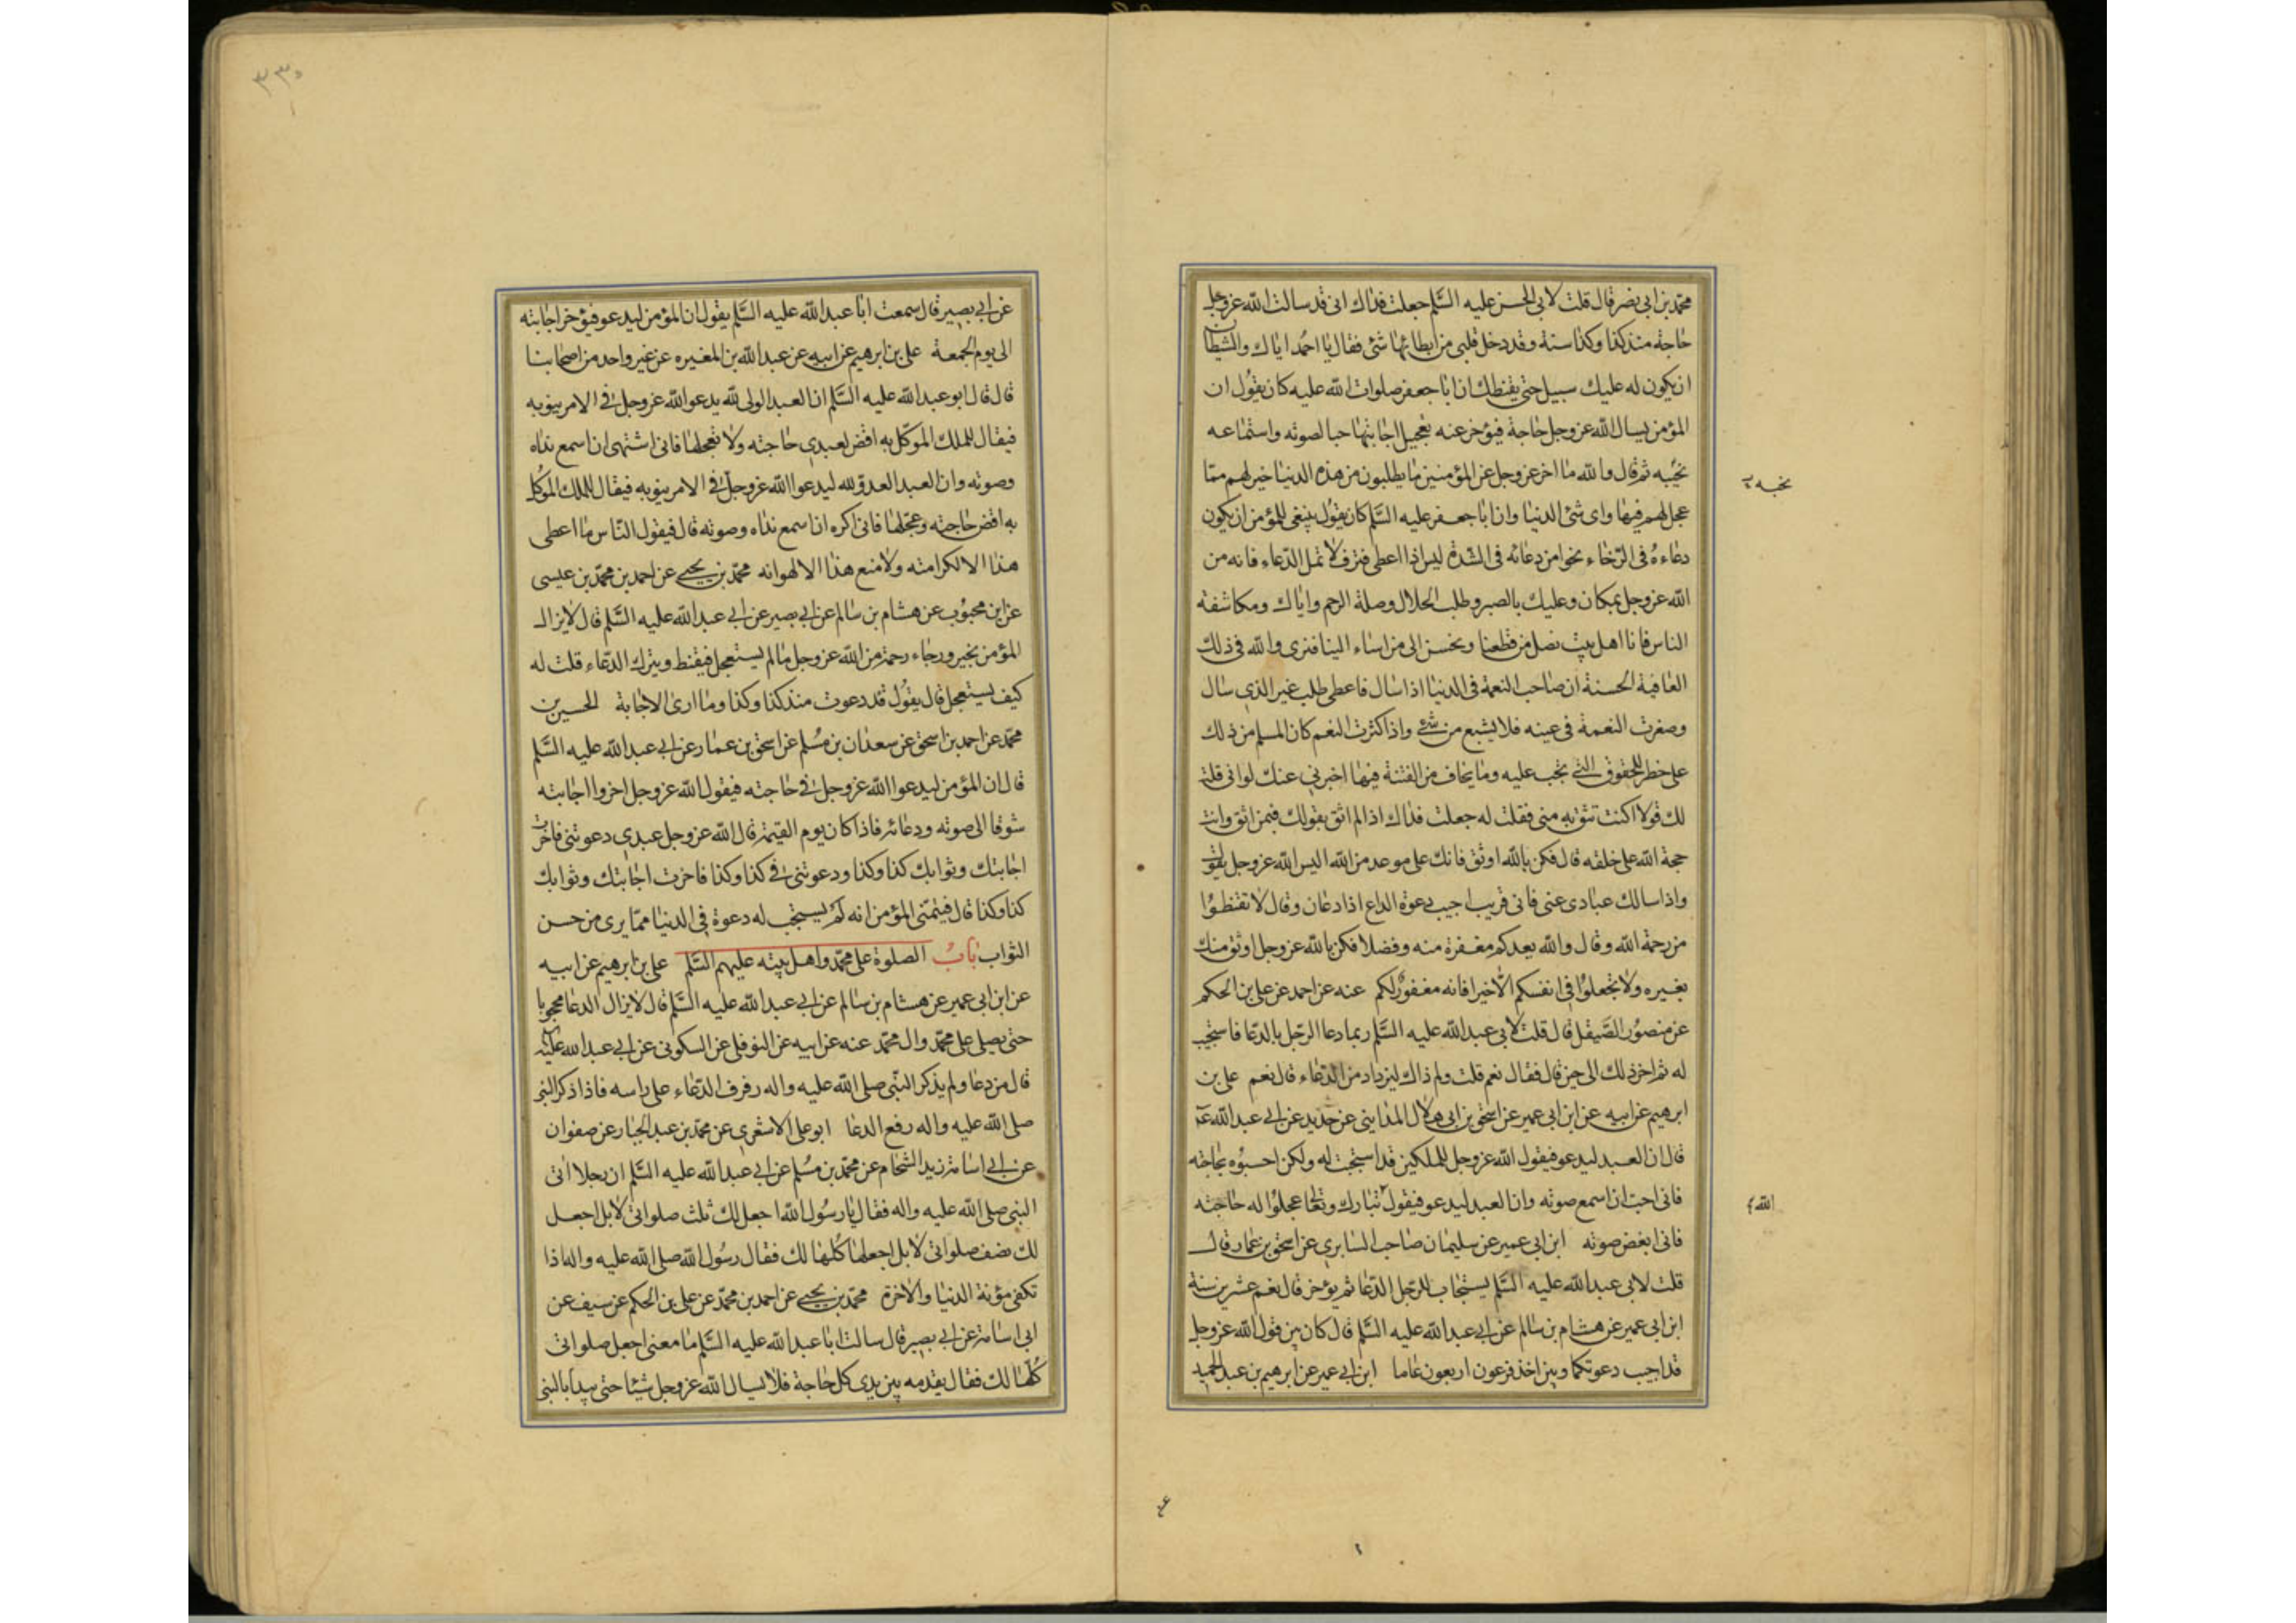 محمد بن ابى نصر قال قلت لابى الحسن عليه السلم جعلت فداك انى قد سالت الله عز وجل
حاجة منذ كذا وكذا سنة وقد دخل قلبى من ابطائها شئ فقال يا احمد اياك والشيطان
ان يكون له عليك سبيل حتى يقنطك ان ابا جعفر صلوات الله عليه كان يقول ان
المؤمن يسال الله عز وجل حاجة فيؤخر عنه تعجيل اجابتها حبا لصوته واستماعه
نحيبه ثم قال والله ما اخر عز وجل عن المؤمنين ما يطلبون من هذه الدنيا خير لهم مما
عجل لهم فيها واى شئ الدنيا وان ابا جعفر عليه السلم كان يقول ينبغى للمؤمن ان يكون
دعاءه فى الرخاء نحوا من دعائه فى الشدة ليس اذا اعطى فتر فلا تمل الدعاء فانه من
الله عز وجل بمكان وعليك بالصبر وطلب الحلال وصلة الرحم واياك ومكاشفة
الناس فانا اهل بيت نصل من قطعنا ونحسن الى من اساء الينا فنرى والله فى ذلك
العاقبة الحسنة ان صاحب النعمة فى الدنيا اذا سال فاعطى طلب غير الذى سال
وصغرت النعمة فى عينه فلا يشبع من شئ واذا كثرت النعم كان المسلم من ذلك
على خطر للحقوق التى يجب عليه وما يخاف من الفتنة فيها اخبرنى عنك لو انى قلت
لك قولا اكنت تثق به منى فقلت له جعلت فداك اذا لم اثق بقولك فبمن اثق وانت
حجة الله على خلقه قال فكن بالله اوثق فانك على موعد من الله اليس الله عز وجل يقول
واذا سالك عبادى عنى فانى قريب اجيب دعوة الداع اذا دعان وقال لا تقنطوا
من رحمة الله وقال والله يعدكم مغفرة منه وفضلا فكن بالله عز وجل اوثق منك
بغيره ولا تجعلوا فى انفسكم الا خيرا فانه مغفور لكم عنه عن احمد عن على بن الحكم
عن منصور الصيقل قال قلت لابى عبد الله عليه السلم ربما دعا الرجل بالدعا فاستجيب
له ثم اخر ذلك الى حين قال فقال نعم قلت ولم ذاك ليزداد من الدعاء قال نعم على بن
ابرهيم عن ابيه عن ابن ابى عمير عن اسحق بن ابى هلال المداينى عن حديد عن ابى عبد الله عم
قال ان العبد ليدعو فيقول الله عز وجل للملكين قد استجبت له ولكن احبسوه بحاجته
فانى احب ان اسمع صوته وان العبد ليدعو فيقول تبارك وتعالى عجلوا له حاجته
فانى ابغض صوته ابن ابى عمير عن سليمان صاحب السابرى عن اسحق بن عمار قال
قلت لابى عبد الله عليه السلم يستجاب للرجل الدعا ثم يؤخر قال نعم عشرين سنة
ابن ابى عمير عن هشام بن سالم عن ابى عبد الله عليه السلم قال كان بين قول الله عز وجل
قد اجيبت دعوتكما وبين اخذ فرعون اربعون عاما ابن ابى عمير عن ابرهيم بن عبد الحميد
نحيبه
الله
عن ابى بصير قال سمعت ابا عبد الله عليه السلم يقول ان المؤمن ليدعو فيؤخر اجابته
الى يوم الجمعة على بن ابرهيم عن ابيه عن عبد الله بن المغيره عن غير واحد من اصحابنا
قال قال ابو عبد الله عليه السلم ان العبد الولى لله يدعو الله عز وجل فى الامر ينوبه
فيقال للملك الموكل به اقض لعبدى حاجته ولا تعجلها فانى اشتهى ان اسمع نداه
وصوته وان العبد العدو لله ليدعوا الله عز وجل فى الامر ينوبه فيقال للملك الموكل
به اقض حاجته وعجلها فانى اكره ان اسمع نداه وصوته قال فيقول الناس ما اعطى
هذا الا لكرامته ولا منع هذا الا لهوانه محمد بن يحيى عن احمد بن محمد بن عيسى
عن ابن محبوب عن هشام بن سالم عن ابى بصير عن ابى عبد الله عليه السلم قال لا يزال
المؤمن بخير ورجاء رحمة من الله عز وجل ما لم يستعجل فيقنط ويترك الدعاء قلت له
كيف يستعجل قال يقول قد دعوت منذ كذا وكذا وما ارى الاجابة الحسين بن
محمد عن احمد بن اسحق عن سعدان بن مسلم عن اسحق بن عمار عن ابى عبد الله عليه السلم
قال ان المؤمن ليدعوا الله عز وجل فى حاجته فيقول الله عز وجل اخروا اجابته
شوقا الى صوته ودعائه فاذا كان يوم القيمة قال الله عز وجل عبدى دعوتنى فاخرت
اجابتك وثوابك كذا وكذا ودعوتنى فى كذا وكذا فاخرت اجابتك وثوابك
كذا وكذا قال فيتمنى المؤمن انه لم يستجب له دعوة فى الدنيا مما يرى من حسن
الثواب باب الصلوة على محمد واهل بيته عليهم السلم على بن ابرهيم عن ابيه
عن ابن ابى عمير عن هشام بن سالم عن ابى عبد الله عليه السلم قال لا يزال الدعا محجوبا
حتى يصلى على محمد وال محمد عنه عن ابيه عن النوفلى عن السكونى عن ابى عبد الله عليه
قال من دعا ولم يذكر النبى صلى الله عليه واله رفرف الدعاء على راسه فاذا ذكر النبى
صلى الله عليه واله رفع الدعا ابو على الاشعرى عن محمد بن عبد الجبار عن صفوان
عن ابى اسامة زيد الشحام عن محمد بن مسلم عن ابى عبد الله عليه السلم ان رجلا اتى
النبى صلى الله عليه واله فقال يا رسول الله اجعل لك ثلث صلواتى لا بل اجعل
لك نصف صلواتى لا بل اجعلها كلها لك فقال رسول الله صلى الله عليه واله اذا
تكفى مؤنة الدنيا والاخرة محمد بن يحيى عن احمد بن محمد عن على بن الحكم عن سيف عن
ابى اسامة عن ابى بصير قال سالت ابا عبد الله عليه السلم ما معنى اجعل صلواتى
كلها لك فقال يقدمه بين يدى كل حاجة فلا يسال الله عز وجل شيئا حتى يبدا بالنبى